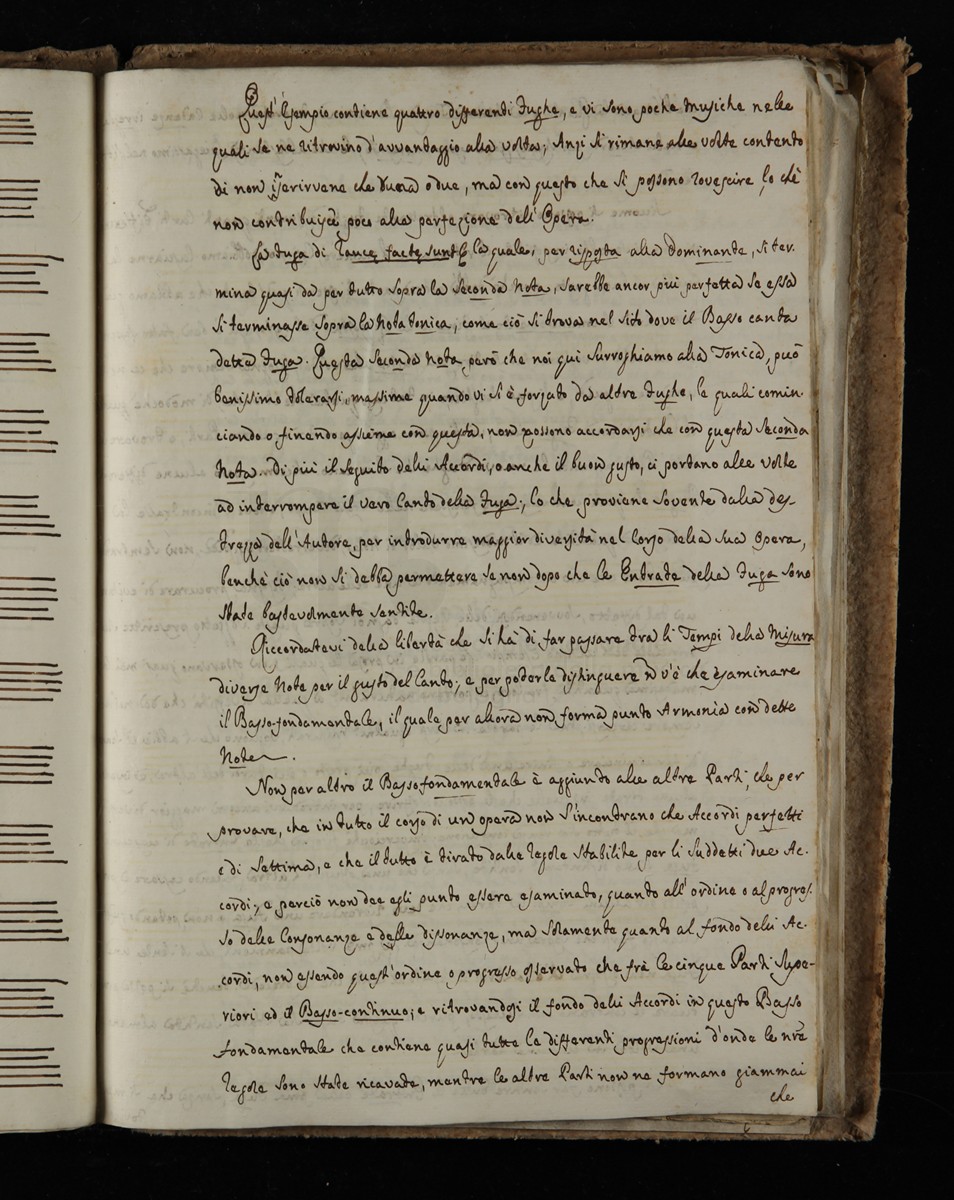 Quest'Esempio contiene quattro differenti Fughe, e vi sono poche Musiche nelle
quali se ne ritrovino d'avvantaggio alla volta; Anzi si rimane alle volte contento
di non servirvene che d'una o due, ma con questo che si possono rovescire, lo chè
non contribuisce poco alla perfezione dell'Opera.
La Fuga di Laucę factę sunt &c la quale, per risposta alla Dominante, si ter-
mina quasi da per tutto sopra la Seconda Nota, sarebbe ancor più perfetta se essa
si terminasse sopra la Nota tonica, come ciò si trova nel sito dove il Basso canta
detta Fuga. Questa Seconda Nota, però che noi quì surroghiamo alla Tonica, può
benissimo tolerarsi, massime quando vi si è forzato da altre Fughe, le quali comin-
ciando o finendo assieme con questa, non possono accordarsi che con questa Seconda
Nota. Di più il seguito delli Accordi, o anche il buon gusto, ci portano alle volte
ad interrompere il vero Canto della Fuga; lo che proviene sovente dalla des-
trezza dell'Autore, per introdurre maggior diversità nel Corso della sua Opera,
benchè ciò non si debba permettere se non dopo che le Entrate della Fuga sono
state bastevolmente sentite.
Riccordatevi della libertà che si hà di far passare tra li Tempi della Misura
diverse Note per il gusto del Canto; e per poterle distinguere ñ v'è che esaminare
il Basso-fondamentale, il quale per allora non forma punto Armonia con dette
Note.
Non per altro il Basso fondamentale è aggiunto alle altre Parti, che per
provare, che in tutto il corso di un opera non s'incontrano che Accordi perfetti
e di Settima, e che il tutto è tirato dalle regole stabilite per li suddetti due Ac-
cordi; e perciò non dee egli punto essere esaminato, quanto all'ordine o al progres-
so delle Consonanze e delle dissonanze, ma solamente quanto al fondo delli Ac-
cordi, non essendo quest'ordine o progresso osservato che frà le cinque Parti Supe-
riori ed il Basso-continuo; e ritrovandosi il fondo delli Accordi in questo Basso
fondamentale che contiene quasi tutte le differenti progressioni d'onde le nr̃e
regole sono state ricavate, mentre le altre Parti non ne formano giammai
che